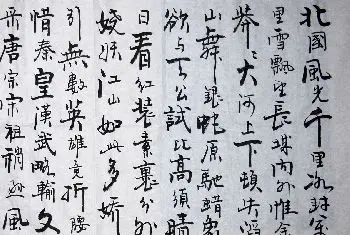 北國風光千里冰封萬
里雪飄望長城内外惟余
莽〻大河上下頓失滔
山舞銀蛇原馳蜡象
欲与天公試比高須晴
日看红装素裹分外
江山如此多嬌
引無數英雄竟折腰
惜秦皇漢武略輸文
采唐宗宋祖稍遜風